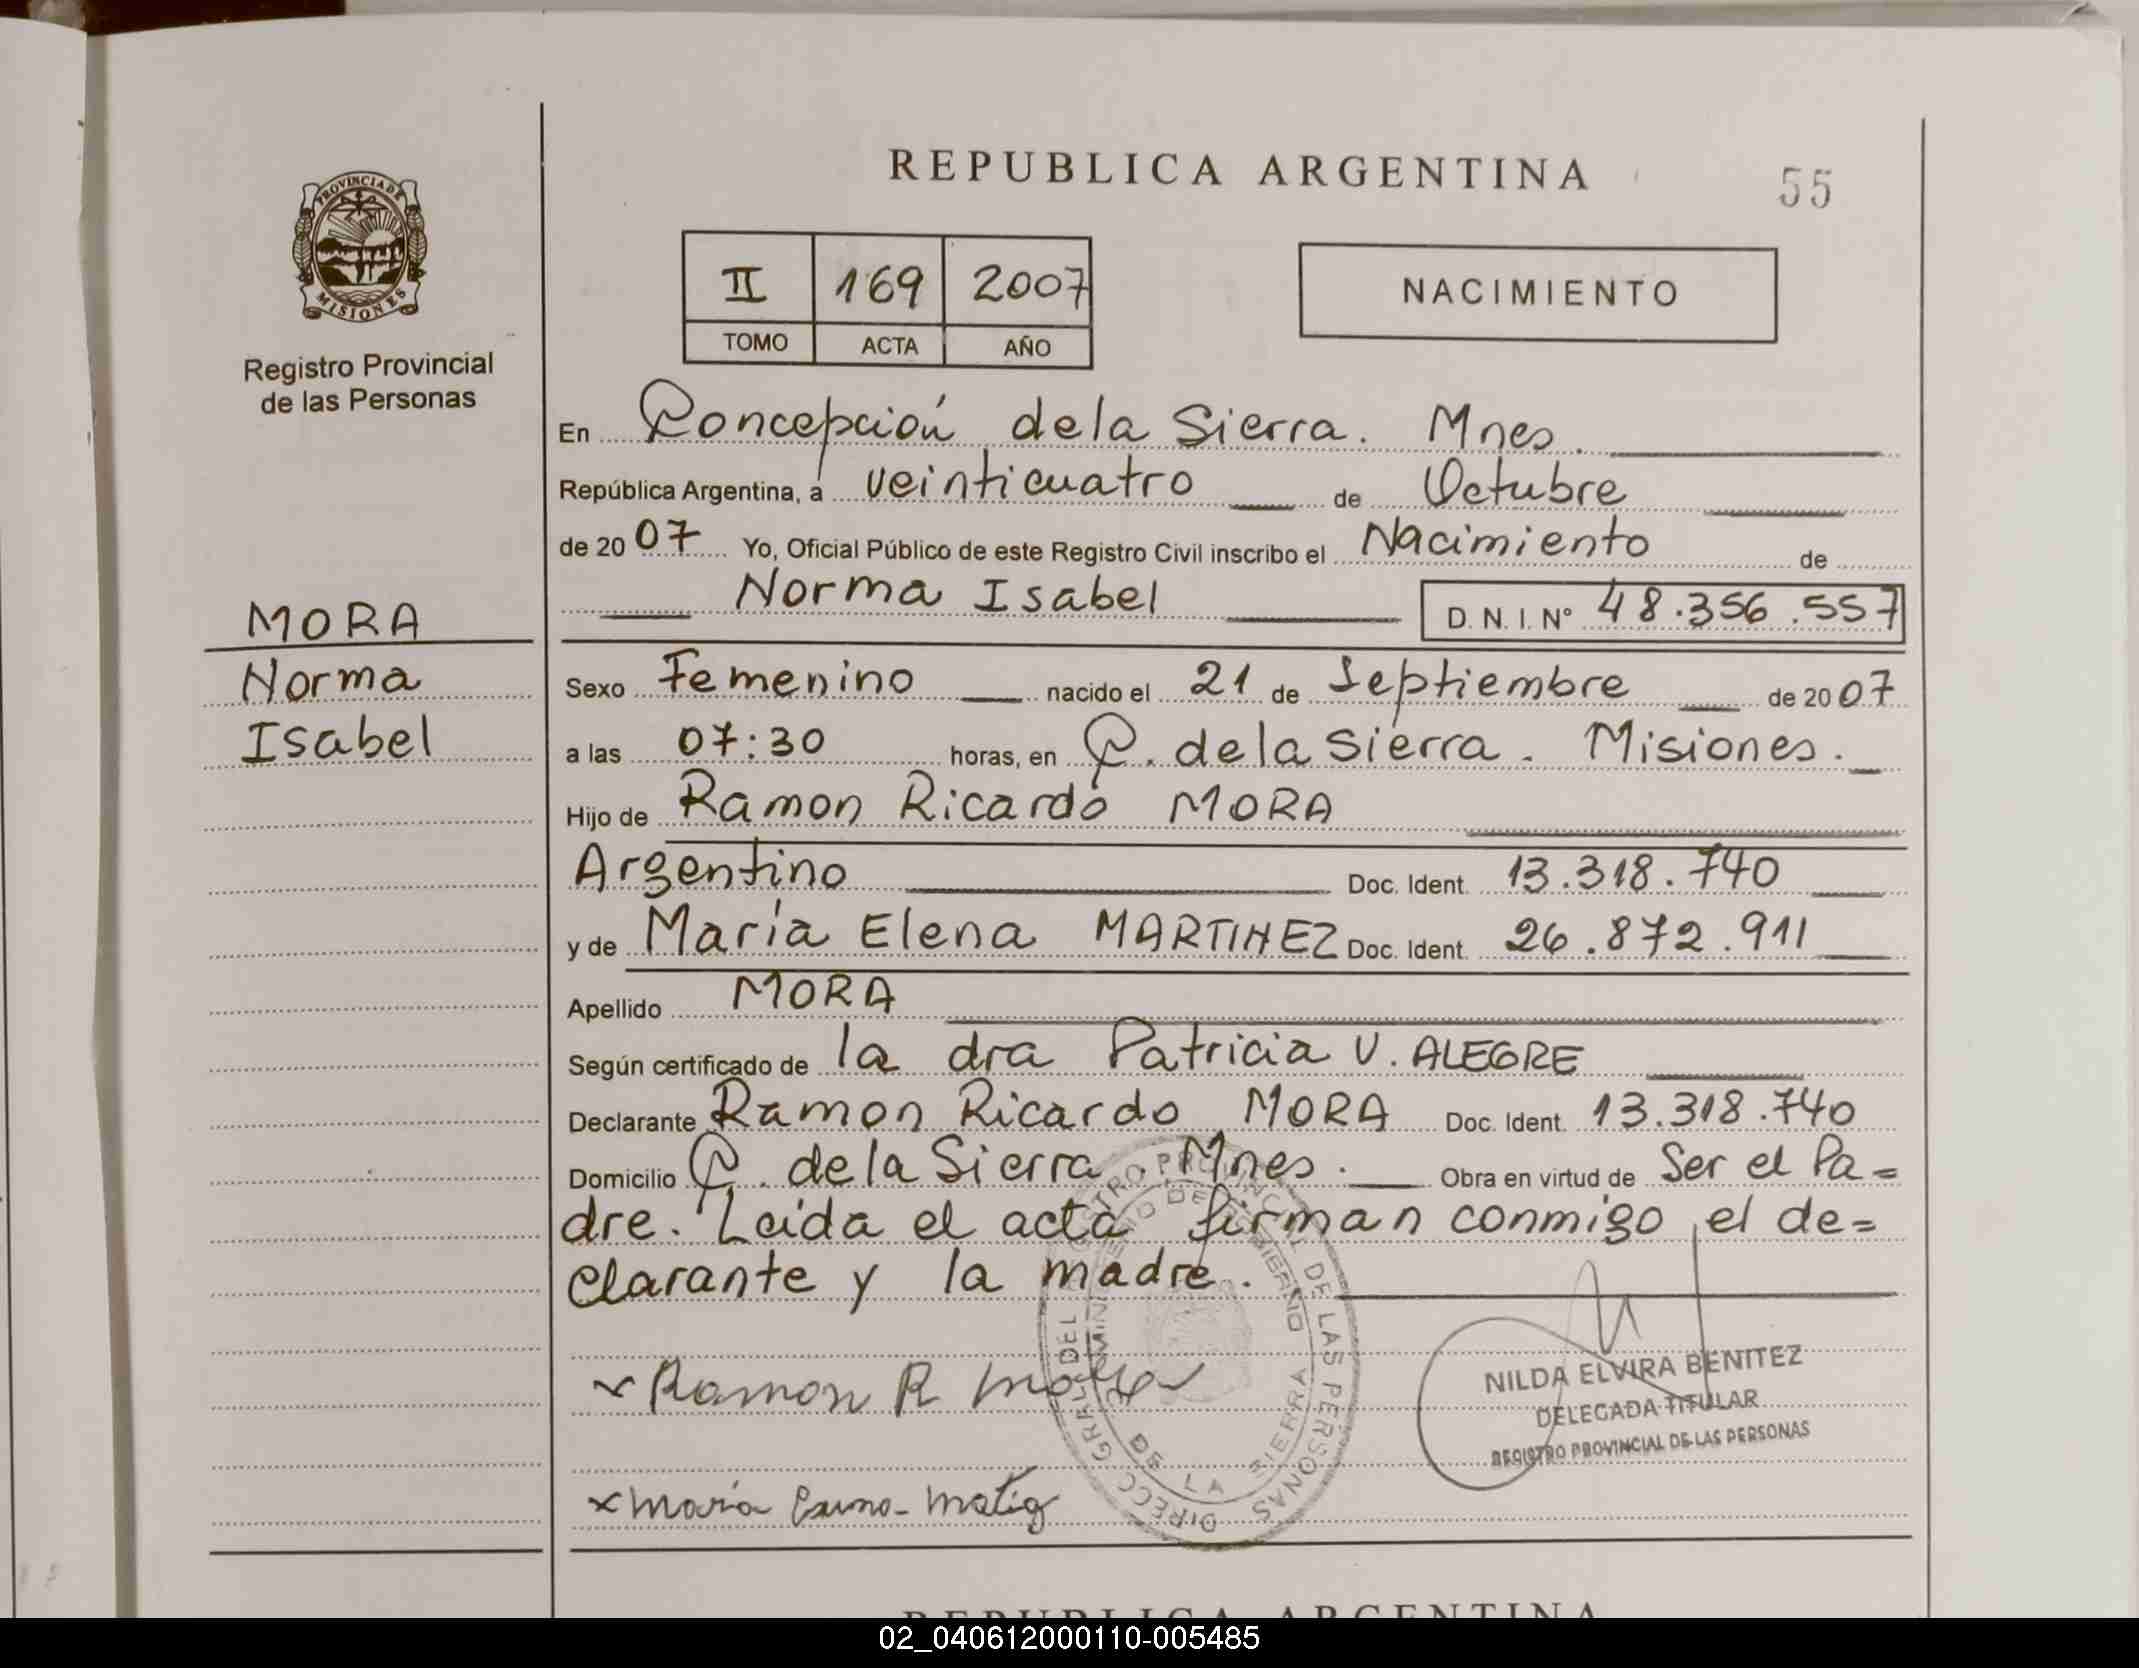 REPUBLICA ARGENTINA
55
PROVINCIA DE
MISIONES
Registro Provincial
de las Personas
II 169 2007
TOMO ACTA AÑO
NACIMIENTO
En Concepción de la Sierra. Mnes.
República Argentina, a veinticuatro de Octubre
de 2007 Yo, Oficial Público de este Registro Civil inscribo el Nacimiento de
Norma Isabel D. N. I. N° 48.356.557
MORA
Norma
Isabel
Sexo Femenino nacido el 21 de Septiembre de 2007
a las 07:30 horas, en C. de la Sierra. Misiones.
Hijo de Ramon Ricardo MORA
Argentino Doc. Ident. 13.318.740
y de María Elena MARTINEZ Doc. Ident. 26.872.911
Apellido MORA
Según certificado de la dra Patricia V. ALEGRE
Declarante Ramon Ricardo MORA Doc. Ident. 13.318.740
Domicilio C. de la Sierra. Mnes. Obra en virtud de Ser el Pa=
dre. Leida el acta firman conmigo el de=
clarante y la madre.
Ramon R Mora
María
NILDA ELVIRA BENITEZ
DELEGADA TITULAR
REGISTRO PROVINCIAL DE LAS PERSONAS
DIRECC. GRRL. DEL REGISTRO PROVINCIAL DE LAS PERSONAS
MINISTERIO DE GOBIERNO
DE LA SIERRA
REPUBLICA ARGENTINA
02_040612000110-005485